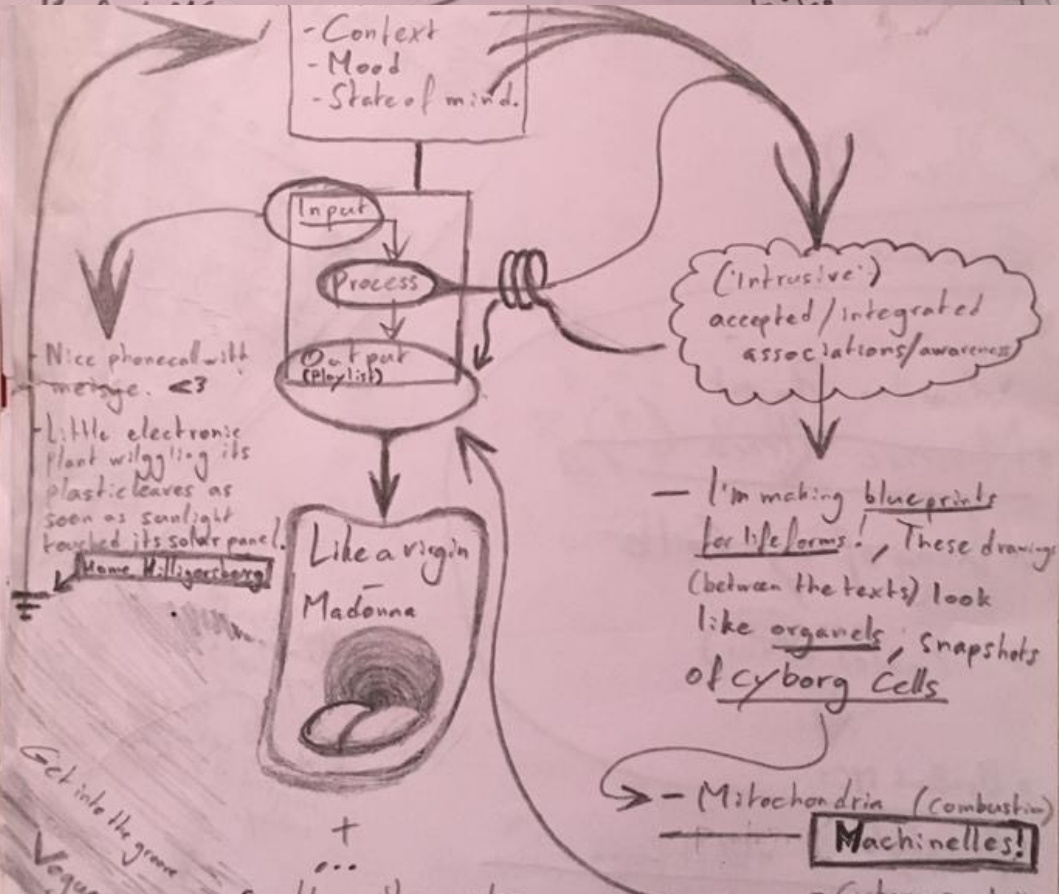 - Context
- Mood
- State of mind.
Input
Process
Output
(Playlist)
('Intrusive')
accepted/integrated
associations/awareness
- Nice phonecall with
<3
- Little electronic
Plant wilggling its
plastic leaves as
soon as sunlight
touched its solar panel.
Home Hilligersberg
Like a virgin
-
Madonna
+
...
- I'm making blueprints
for lifeforms!, These drawings
(between the texts) look
like organels, snapshots
of cyborg cells
- Mitochondria (combustion)
Machinelles!
Get into the groove